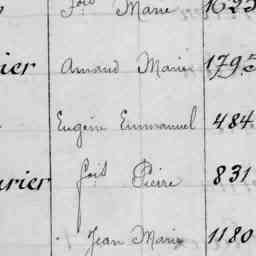 fois Marie 1625
ier Amand Marie 1795
Eugène Emmanuel 484
urier fois Pierre 831
Jean Marie 1180